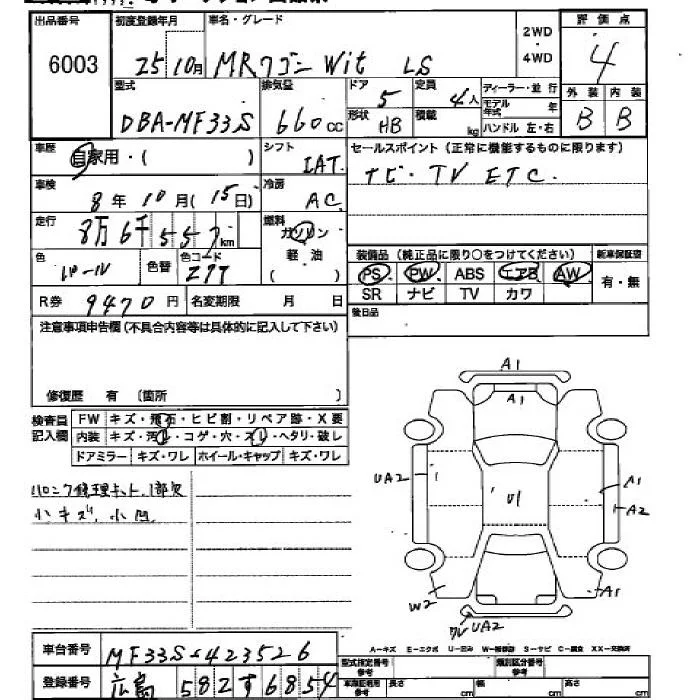 出品番号 初度登録年月 車名・グレード 2WD・4WD 評価点
6003 25 10月 MRワゴン Wit LS 4
型式 排気量 ドア 定員 ディーラー・並行 外装 内装
DBA-MF33S 660cc 5 4人 モデル年式 年 B B
形状 HB 積載 kg ハンドル 左・右
車歴 自家用・( ) シフト IAT セールスポイント(正常に機能するものに限ります)
車検 8年10月(15日) 冷房 AC ナビ・TV ETC.
走行 8万6千557km 燃料 ガソリン 軽油 ( )
装備品(純正品に限り○をつけてください) 新車保証書
色 パール 色替 色コード Z7T PS PW ABS エアB AW 有・無
SR ナビ TV カワ
R券 9470円 名変期限 月 日 後日品
注意事項申告欄(不具合内容等は具体的に記入して下さい)
修復歴 有 〔箇所 〕
検査員記入欄 FW キズ・飛石・ヒビ割・リペア跡・X要
内装 キズ・汚レ・コゲ・穴・スレ・ヘタリ・破レ
ドアミラー キズ・ワレ ホイール・キャップ キズ・ワレ
パンク修理キット1部欠
小キズ、小凹
A1
A1
UA2
U1
A1
A2
W2
A1
ワレ UA2
車台番号 MF33S-423526
A-キズ E-エクボ U-凹み W-補修跡 S-サビ C-腐食 XX-交換済
型式指定番号 参考 類別区分番号 参考
登録番号 広島 582す6854
車庫証明用 参考 長さ cm 幅 cm 高さ cm